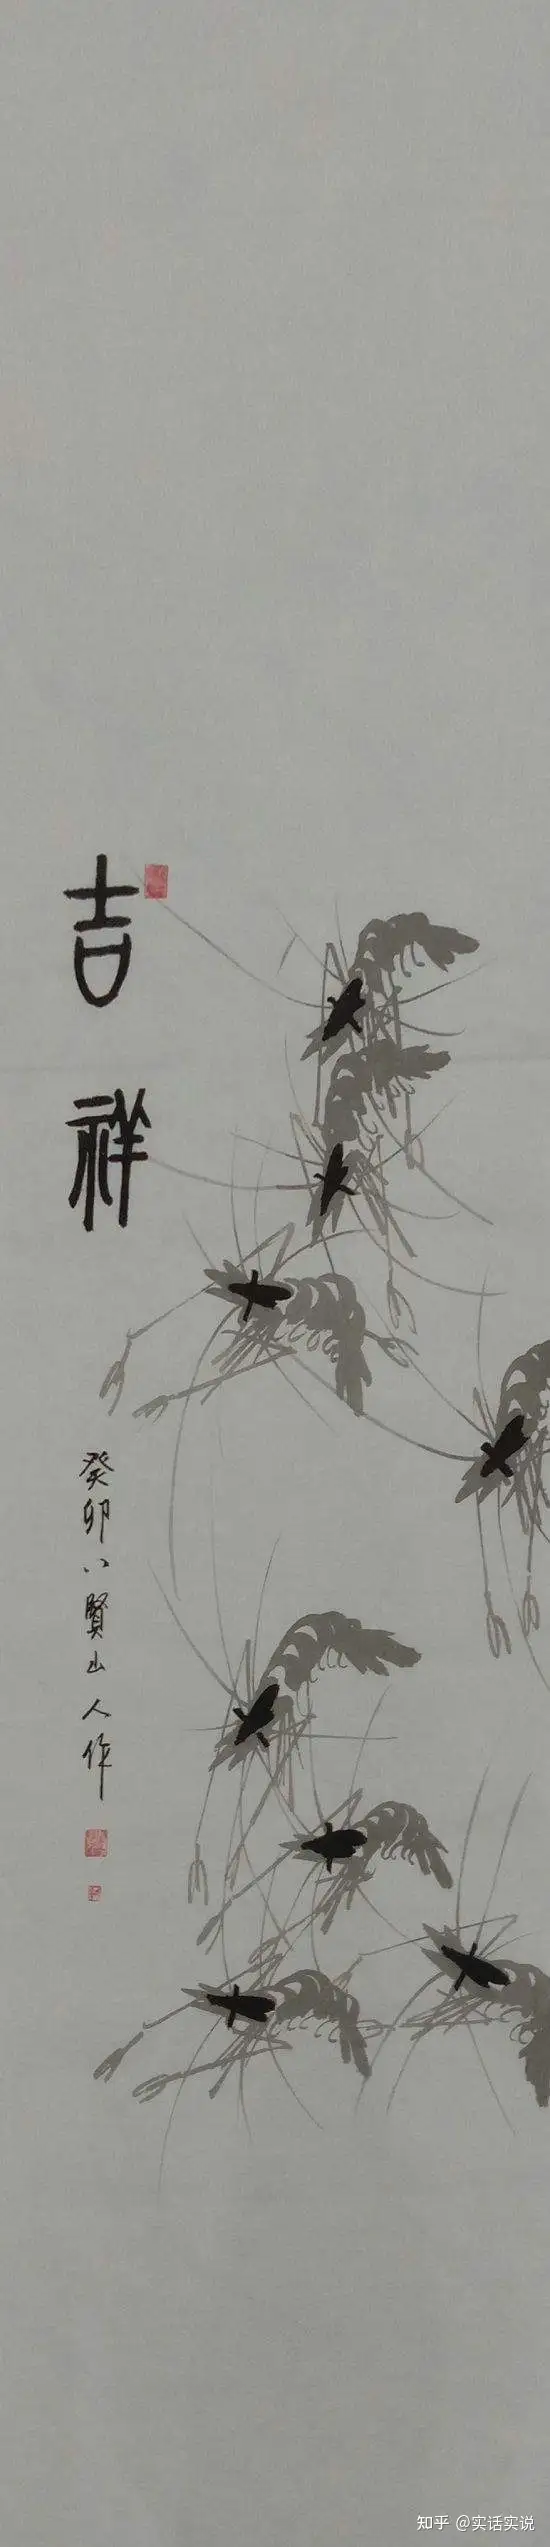 吉祥
癸卯八賢山人作
知乎 @实话实说